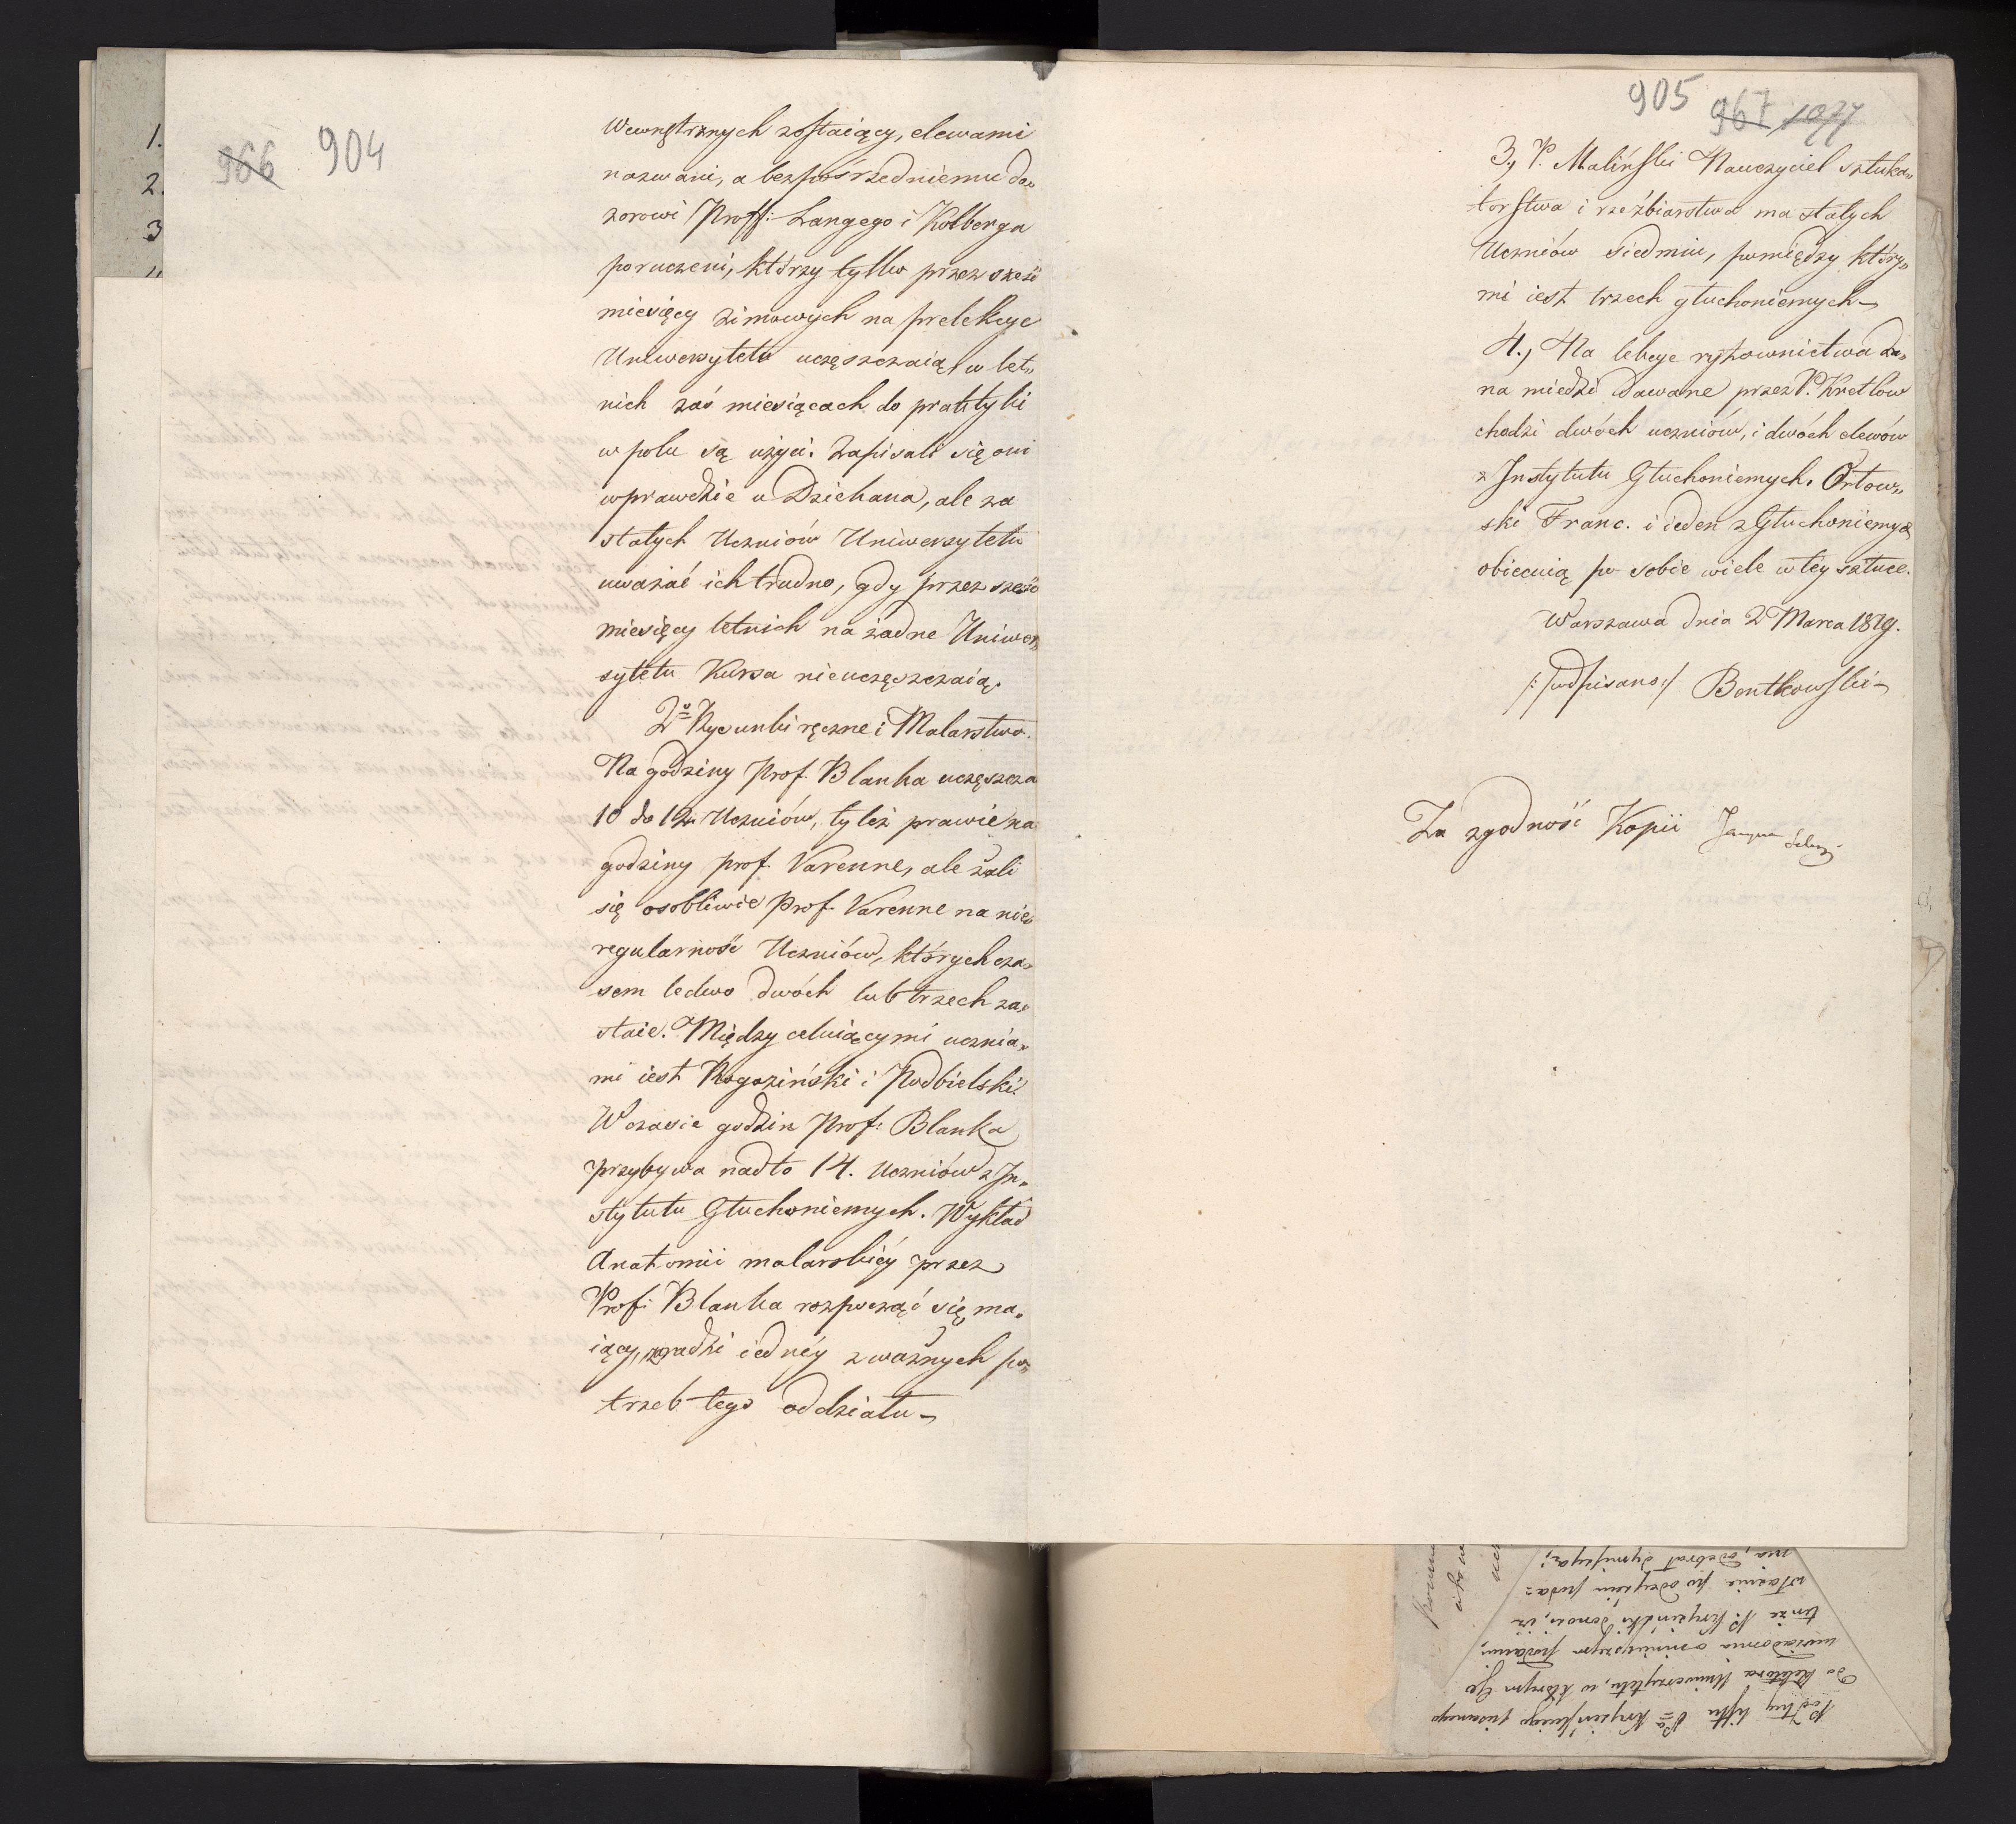 966 904
1.
2.
3
Wewnętrznych zostaiący, elewami
nazwani, a bezpośrzedniemu do„
zorowi Proff: Langego i Kolberga
poruczeni, którzy tylko przez sześć
miesięcy zimowych na prelekcye
Uniwersytetu uczęszczaią, w let„
nich zaś miesiącach do praktyki
w polu są użyci. Zapisali się oni
wprawdzie u Dziekana, ale za
stałych Uczniów Uniwersytetu
uważać ich trudno, gdy przez sześć
miesięcy letnich na żadne Uniwer„
sytetu Kursa nieuczęszczaią.
2o Rysunki ręczne i Malarstwo.
Na godziny Prof. Blanka uczęszcza
10 do 12 Uczniów, tyleż prawie na
godziny prof. Varenne, ale żali
się osobliwie Prof. Varenne na nie„
regularność Uczniów, których cza„
sem ledwo dwóch lub trzech za„
staie. Między celuiącymi ucznia„
mi iest Rogoziński i Podbielski.
W czasie godzin Prof: Blanka
przybywa nadto 14. Uczniów z In„
stytutu Głuchoniemych. Wykład
Anatomii malarskiéy przez
Prof: Blanka rozpocząć się ma„
iący, zaradzi iednéy z ważnych po„
trzeb tego oddziału –
905 967 1077
3., P. Maliński Nauczyciel sztuka„
torstwa i rzeźbiarstwa ma stałych
Uczniów siedmiu, pomiędzy który„
mi iest trzech głuchoniemych –
4., Na lekcye rytownictwa
na miedzi dawane przez P. Kretlow
chodzi dwóch uczniów, i dwóch elewów
z Instytutu Głuchoniemych. Orłow„
ski Franc. i ieden z Głuchoniemych
obiecuią po sobie wiele w téy sztuce.
Warszawa dnia 2 Marca 1819.
/: podpisano :/ Bentkowski –
Za zgodność Kopii
Podług listu Krysińskiego pisanego
do Rektora Uniwersytetu, w którym Go
uwiadomia o ninieyszym podaniu,
tenże P. Krysiński donosi, iż
właśnie po odeyściu poda=
nia, odebrał dymissyą;